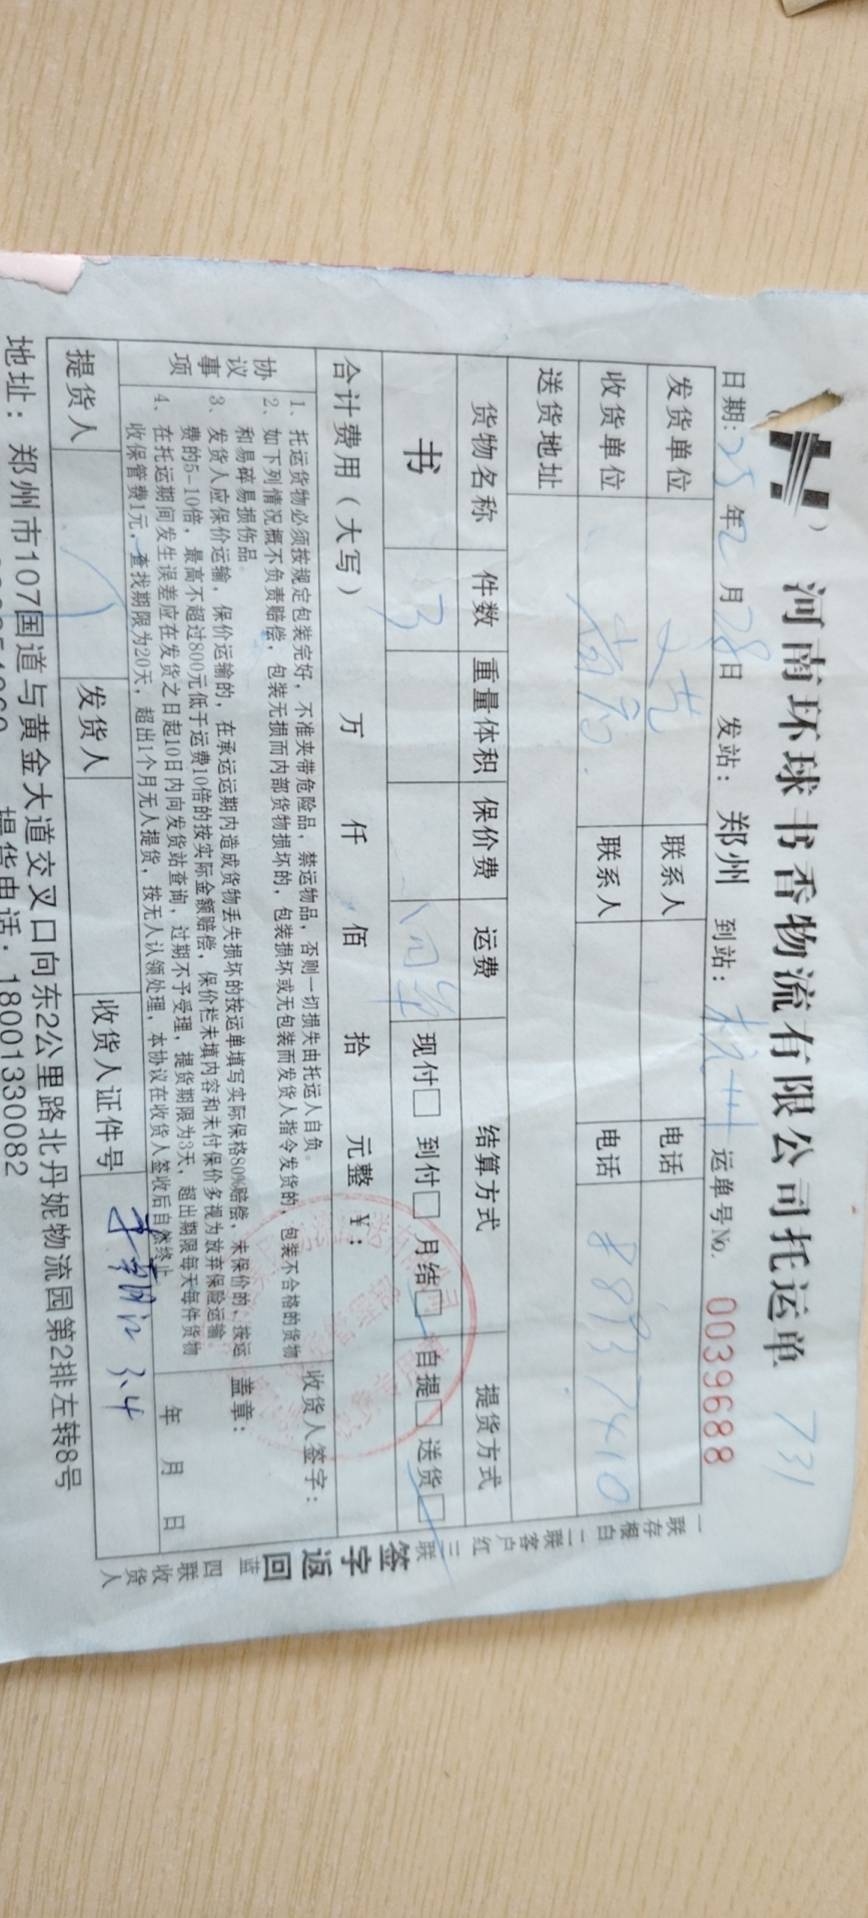 河南环球书香物流有限公司托运单 731
日期: 25 年 2 月 28 日 发站: 郑州 到站: 杭州 运单号No. 0039688
发货单位 文艺 联系人 电话
收货单位 联系人 电话 88937410
送货地址
货物名称 件数 重量体积 保价费 运费 结算方式 提货方式
书 3 回单 现付□ 到付□ 月结□ 自提□ 送货□
合计费用(大写) 万 仟 佰 拾 元整 ¥:
协议事项
1、托运货物必须按规定包装完好,不准夹带危险品,禁运物品,否则一切损失由托运人自负。
2、如下列情况概不负责赔偿,包装无损而内部货物损坏的,包装损坏或无包装而发货人指令发货的,包装不合格的货物
和易碎易损伤品。
3、发货人应保价运输,保价运输的,在承运运期内造成货物丢失损坏的按运单填写实际保格80%赔偿,未保价的,按运
费的5-10倍,最高不超过800元低于运费10倍的按实际金额赔偿,保价栏未填内容和未付保价多视为放弃保险运输。
4、在托运期间发生误差应在发货之日起10日内向发货站查询,过期不予受理,提货期限为3天,超出期限每天每件货物
收保管费1元,查找期限为20天,超出1个月无人提货,按无人认领处理,本协议在收货人签收后自然终止
收货人签字:
盖章:
年 月 日
提货人 发货人 收货人证件号 3.4
地址:郑州市107国道与黄金大道交叉口向东2公里路北丹妮物流园第2排左转8号
提货电话:18001330082
一联存根白 二联客户红 三联签字返回蓝 四联收货人